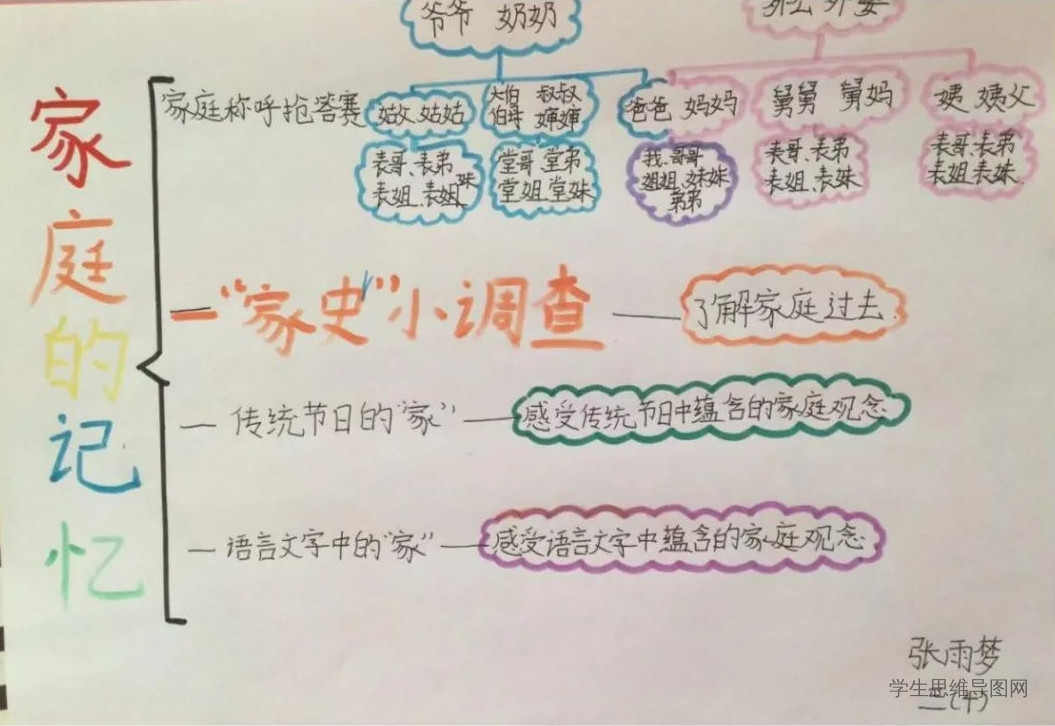 爷爷 奶奶
外公 外婆
家庭的记忆
家庭称呼抢答赛
姑父 姑姑
大伯 叔叔
伯母 婶婶
爸爸 妈妈
舅舅 舅妈
姨 姨父
表哥、表弟
表姐、表妹
堂哥、堂弟
堂姐、堂妹
我、哥哥
姐姐、妹妹
弟弟
表哥、表弟
表姐、表妹
表哥、表弟
表姐、表妹
“家史”小调查
了解家庭过去
传统节日的“家”
感受传统节日中蕴含的家庭观念
语言文字中的“家”
感受语言文字中蕴含的家庭观念
张雨梦
学生思维导图网
二(十)